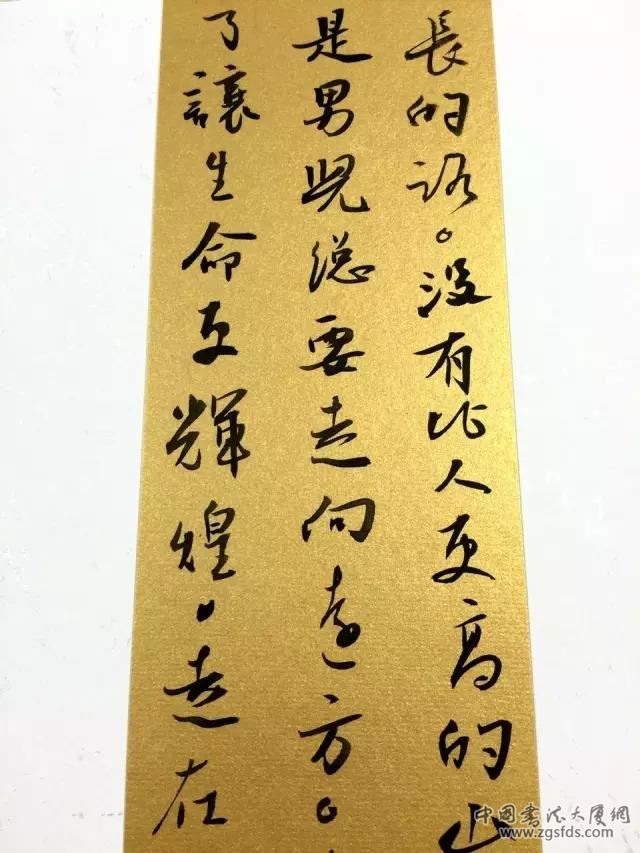 長的路。没有比人更高的山
是男児總要走向遠方。
了讓生命更輝煌。走在
中国书法大厦網
www.zgsfds.com